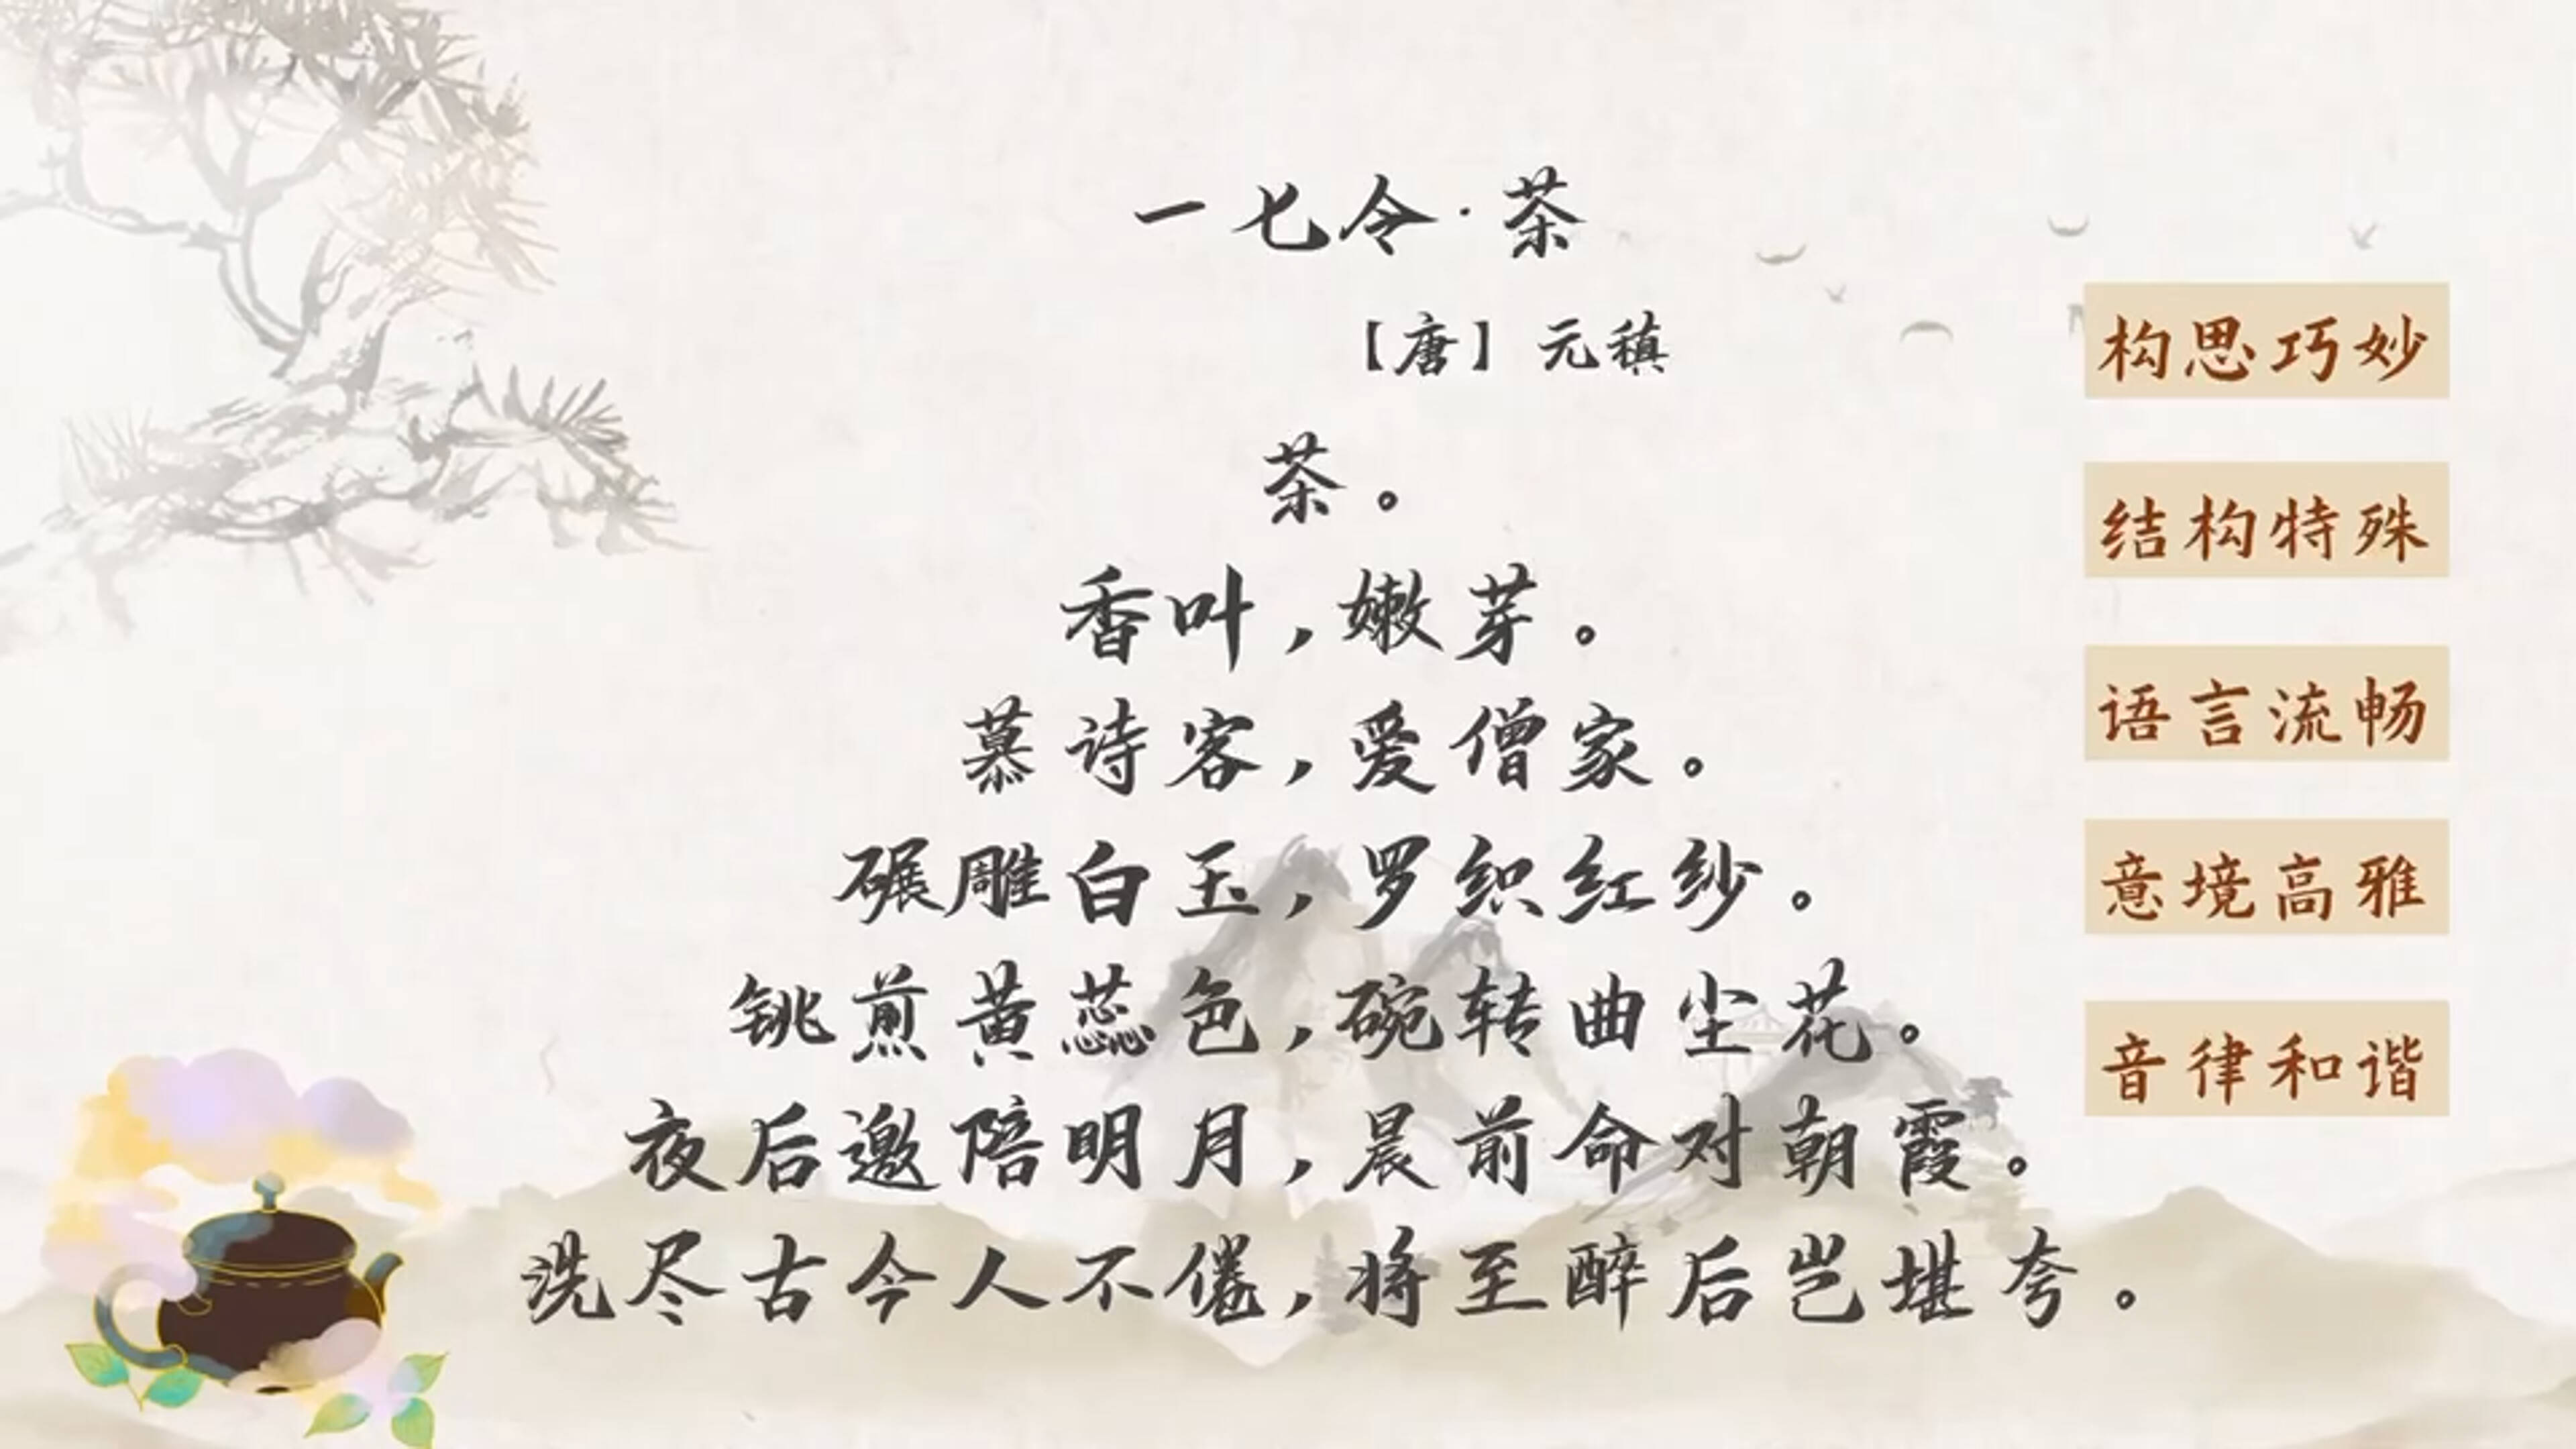 一七令·茶
【唐】元稹
茶。
香叶,嫩芽。
慕诗客,爱僧家。
碾雕白玉,罗织红纱。
铫煎黄蕊色,碗转曲尘花。
夜后邀陪明月,晨前命对朝霞。
洗尽古今人不倦,将至醉后岂堪夸。
构思巧妙
结构特殊
语言流畅
意境高雅
音律和谐